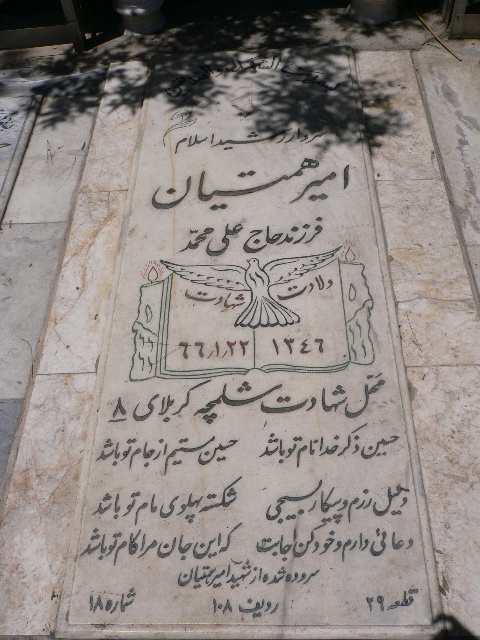 سردار رشید اسلام
امیر همتیان
فرزند حاج علی محمّد
ولادت شهادت
۱۳۴۶ ۶۶٫۱٫۲۲
محل شهادت شلمچه کربلای ۸
حسین ذکر خدا نام تو باشد حسین مستیم از جام تو باشد
دلیل رزم و پیکار بسیجی شکسته پهلوی مام تو باشد
دعائی دارم و خود کن اجابت که این جان مرا کام تو باشد
سروده شده از شهید امیر همتیان
قطعه ۲۹ ردیف ۱۰۸ شماره ۱۸